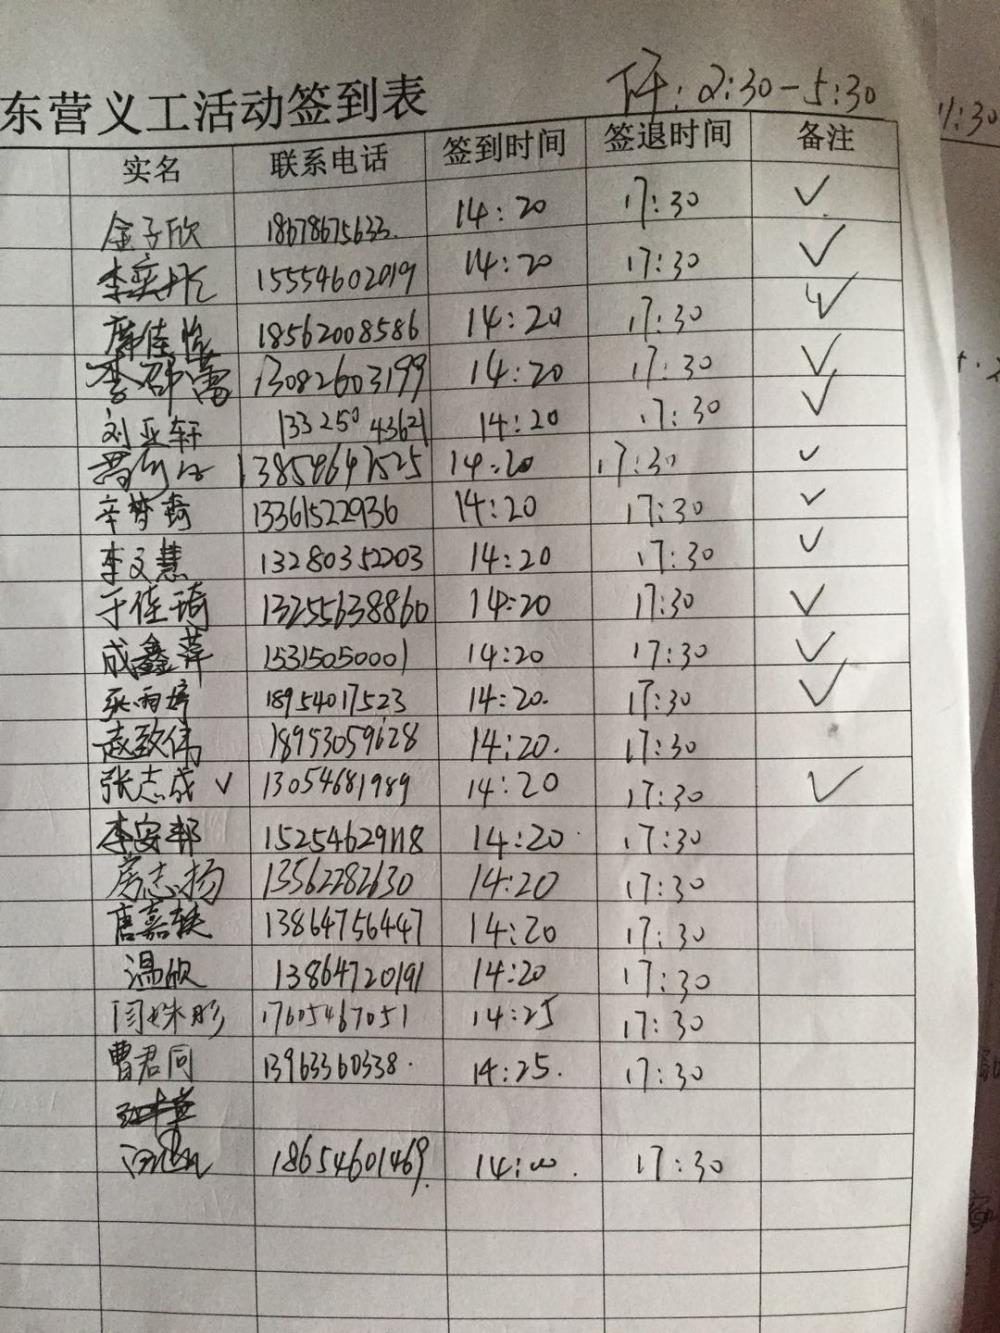 东营义工活动签到表 下午:2:30-5:30
11:30
实名 联系电话 签到时间 签退时间 备注
金子欣 18678675633. 14:20 17:30 ✓
李奕彤 15554602019 14:20 17:30 ✓
席佳怡 18562008586 14:20 17:30 ✓
李邵蕾 13082603199 14:20 17:30 ✓
刘亚轩 13325043621 14:20 17:30 ✓
13854647525 14:20 17:30 ✓
辛梦琦 13361522936 14:20 17:30 ✓
李文慧 13280352203 14:20 17:30 ✓
于佳琦 13255638860 14:20 17:30 ✓
成鑫萍 15315050001 14:20 17:30 ✓
张雨婷 18954017523 14:20. 17:30 ✓
赵致伟 18953059628 14:20. 17:30
张志成 ✓ 13054681989 14:20 17:30 ✓
李安邦 15254629118 14:20 17:30
房志扬 13562282630 14:20 17:30
唐嘉轶 13864756447 14:20 17:30
温欣 13864720191 14:20 17:30
闫姝彤 17605467051 14:25 17:30
曹君同 13963360338. 14:25. 17:30
18654601469. 14:00. 17:30